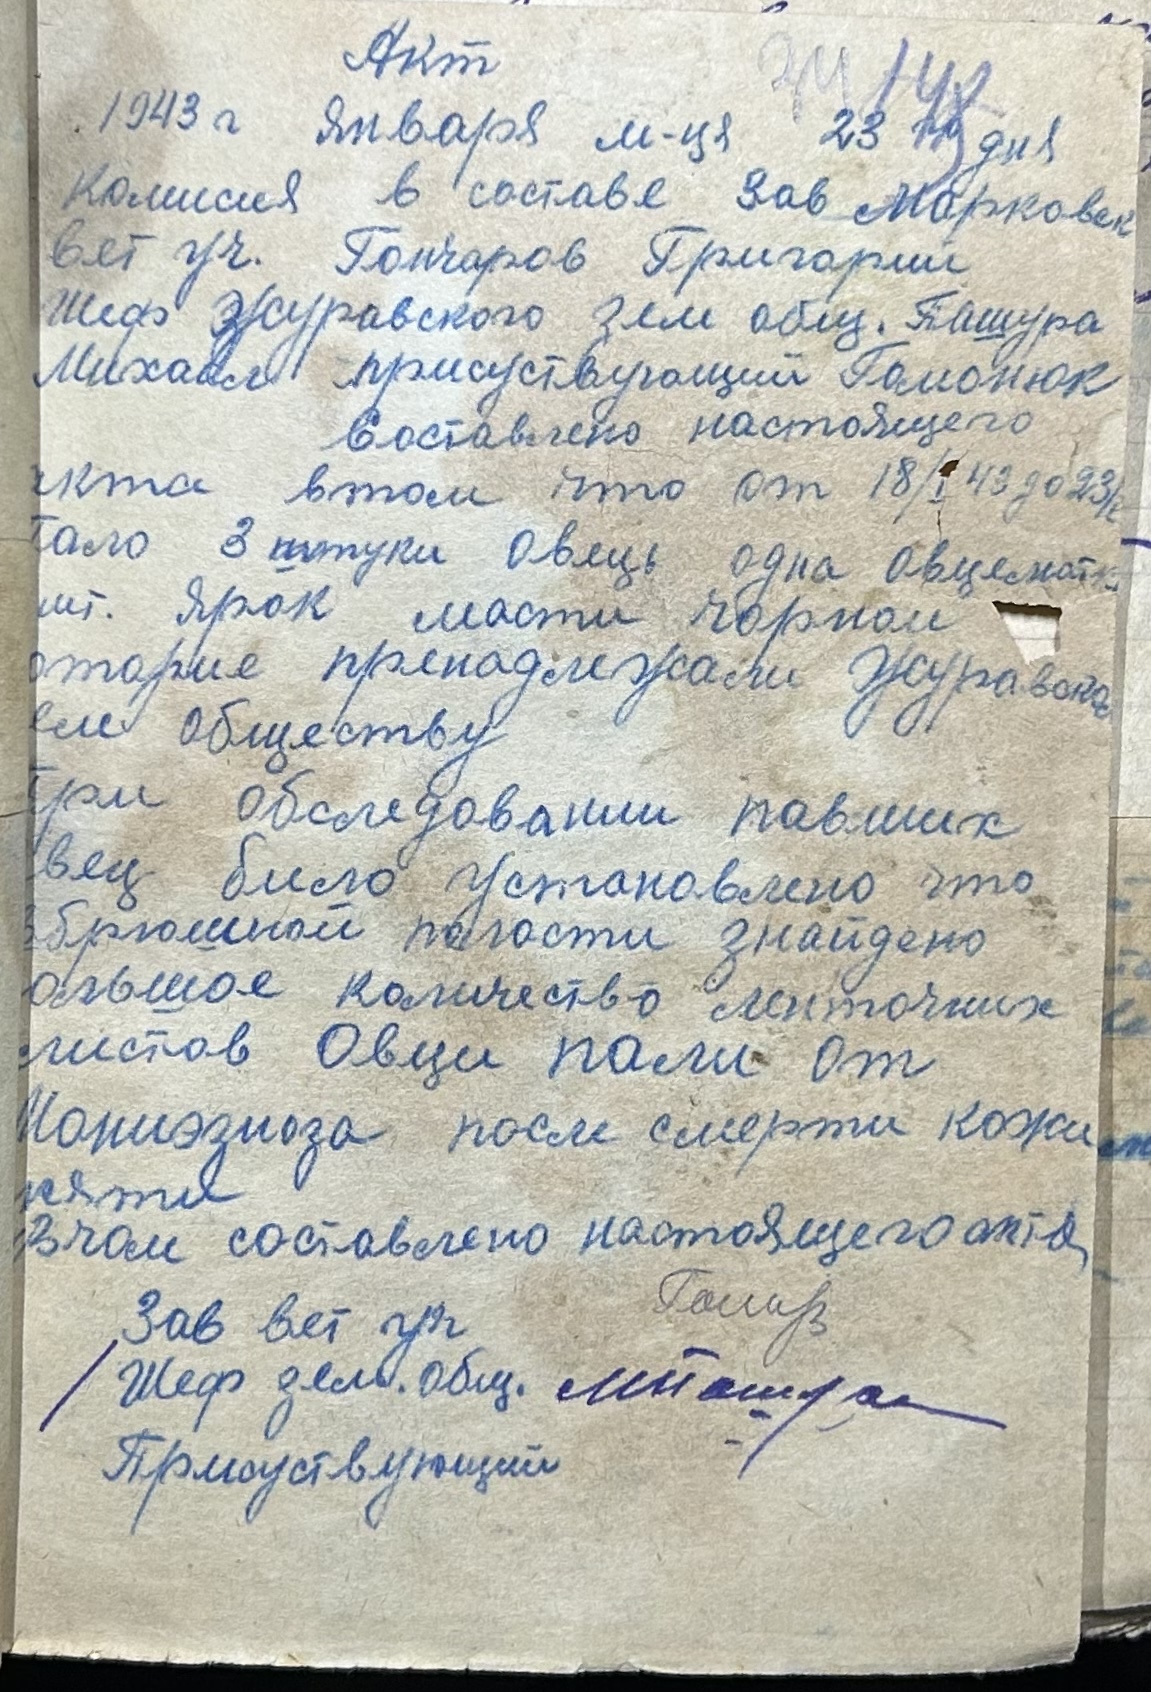 Акт
1943 г января м-ця 23 го дня
Комисия в составе Зав Марковск
вет уч. Гончаров Григарий
Шеф Журавского зем общ. Пашура
Михаил присуствующий Гомонюк
Составлено настоящего
акта втом что от 18/I 43 до 23/I
пало 3 штуки овець одна овцематка
шт. ярок масти чорной
оторие пренадлежали Журавском
ем обществу
При обследовании павших
вец било установлено что
вбрюшной поласти знайдено
ольшое количество ленточних
листов Овци пали от
Мониэзиоза после смерти кожи
няти
Вчом составлено настоящего акта
Зав вет уч
Шеф зем. общ. МПашура
Присуствующий